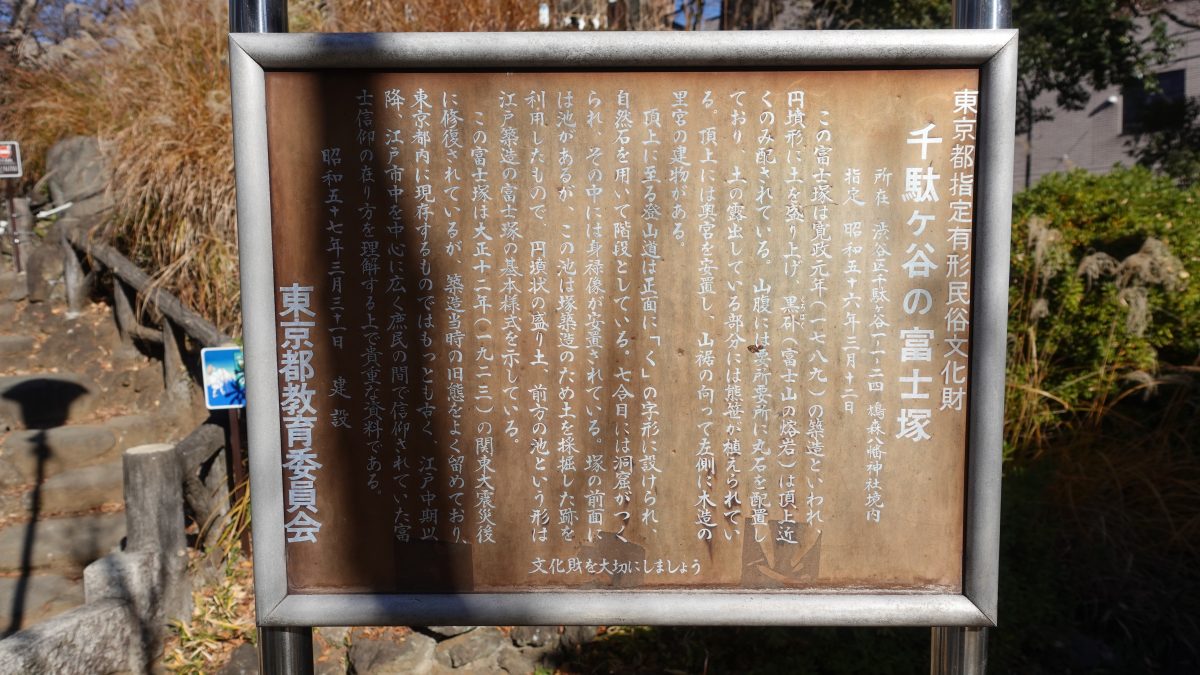 東京都指定有形民俗文化財
千駄ヶ谷の富士塚
所在 渋谷区千駄ヶ谷一・一・二四 鳩森八幡神社境内
指定 昭和五十六年三月十二日
この富士塚は寛政元年（一七八九）の築造といわれ、
円墳形に土を盛り上げ、黒朴（富士山の熔岩）は頂上近
くのみ配されている。山腹には要所要所に丸石を配置し
ており、土の露出している部分には熊笹が植えられてい
る。頂上には奥宮を安置し、山裾の向って左側に木造の
里宮の建物がある。
頂上に至る登山道は正面に「く」の字形に設けられ、
自然石を用いて階段としている。七合目には洞窟がつく
られ、その中には身禄像が安置されている。塚の前面に
は池があるが、この池は塚築造のため土を採掘した跡を
利用したもので、円墳状の盛り土、前方の池という形は
江戸築造の富士塚の基本様式を示している。
この富士塚は大正十二年（一九二三）の関東大震災後
に修復されているが、築造当時の旧態をよく留めており、
東京都内に現存するものではもっとも古く、江戸中期以
降、江戸市中を中心に広く庶民の間で信仰されていた富
士信仰の在り方を理解する上で貴重な資料である。
昭和五十七年三月三十一日 建設
東京都教育委員会
文化財を大切にしましょう